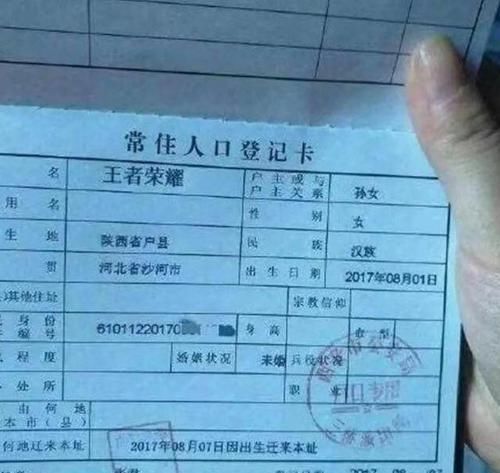 常住人口登记卡
名 王者荣耀 户主或与户主关系 孙女
用名 性别 女
生地 陕西省户县 民族 汉族
贯 河北省沙河市 出生日期 2017年08月01日
)其他住址 宗教信仰
身份编号 6101122017080 身高 血型
程度 婚姻状况 未婚 兵役状况
处所 职业
由何地
本市(县)
何地迁来本址 2017年08月07日因出生迁来本址